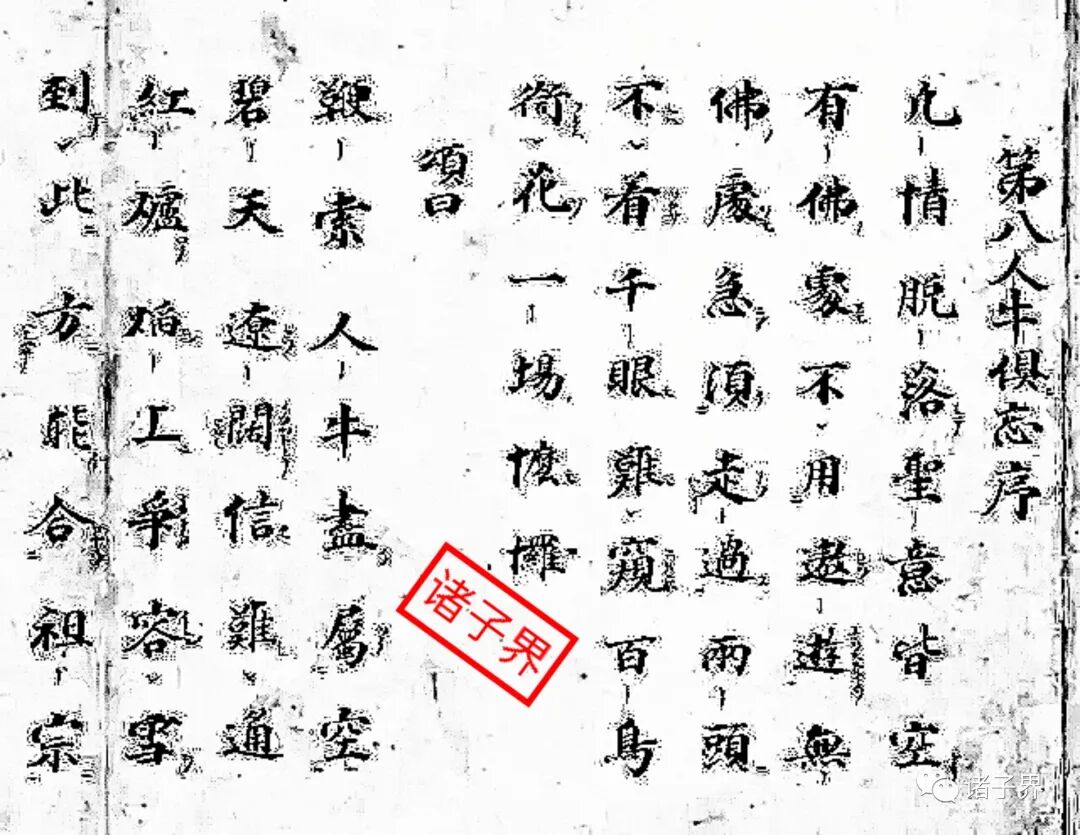 第八人牛俱忘序
凡情脫落聖意皆空
有佛處不用遨遊無
佛處急須走過兩頭
不着千眼難窺百鳥
銜花一場懡㦬
頌曰
鞭索人牛盡屬空
碧天遼闊信難通
紅爐焰上爭容雪
到此方能合祖宗
诸子界
诸子界